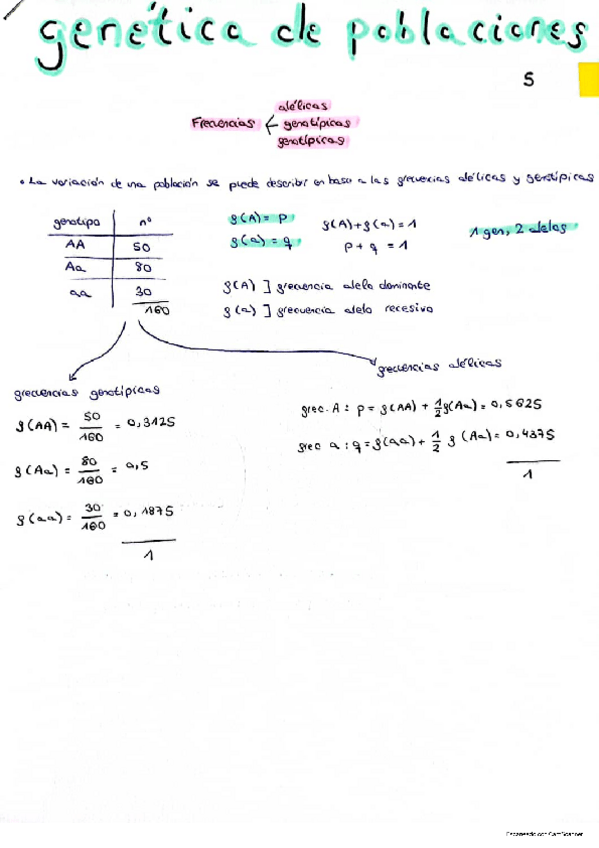 genética de poblaciones
5
alélicas
Frecuencias < genotípicas
genotípicas
• La variación de una población se puede describir en base a las frecuencias alélicas y genotípicas
genotipo nº
AA 50
Aa 80
aa 30
160
f(A) = p
f(a) = q
f(A) + f(a) = 1
p + q = 1
1 gen, 2 alelos
f(A) ] frecuencia alelo dominante
f(a) ] frecuencia alelo recesivo
frecuencias genotípicas
f(AA) = 50/160 = 0,3125
f(Aa) = 80/160 = 0,5
f(aa) = 30/160 = 0,1875
1
frecuencias alélicas
frec. A : p = f(AA) + 1/2 f(Aa) = 0,5625
frec a : q = f(aa) + 1/2 f(Aa) = 0,4375
1
Escaneado con CamScanner